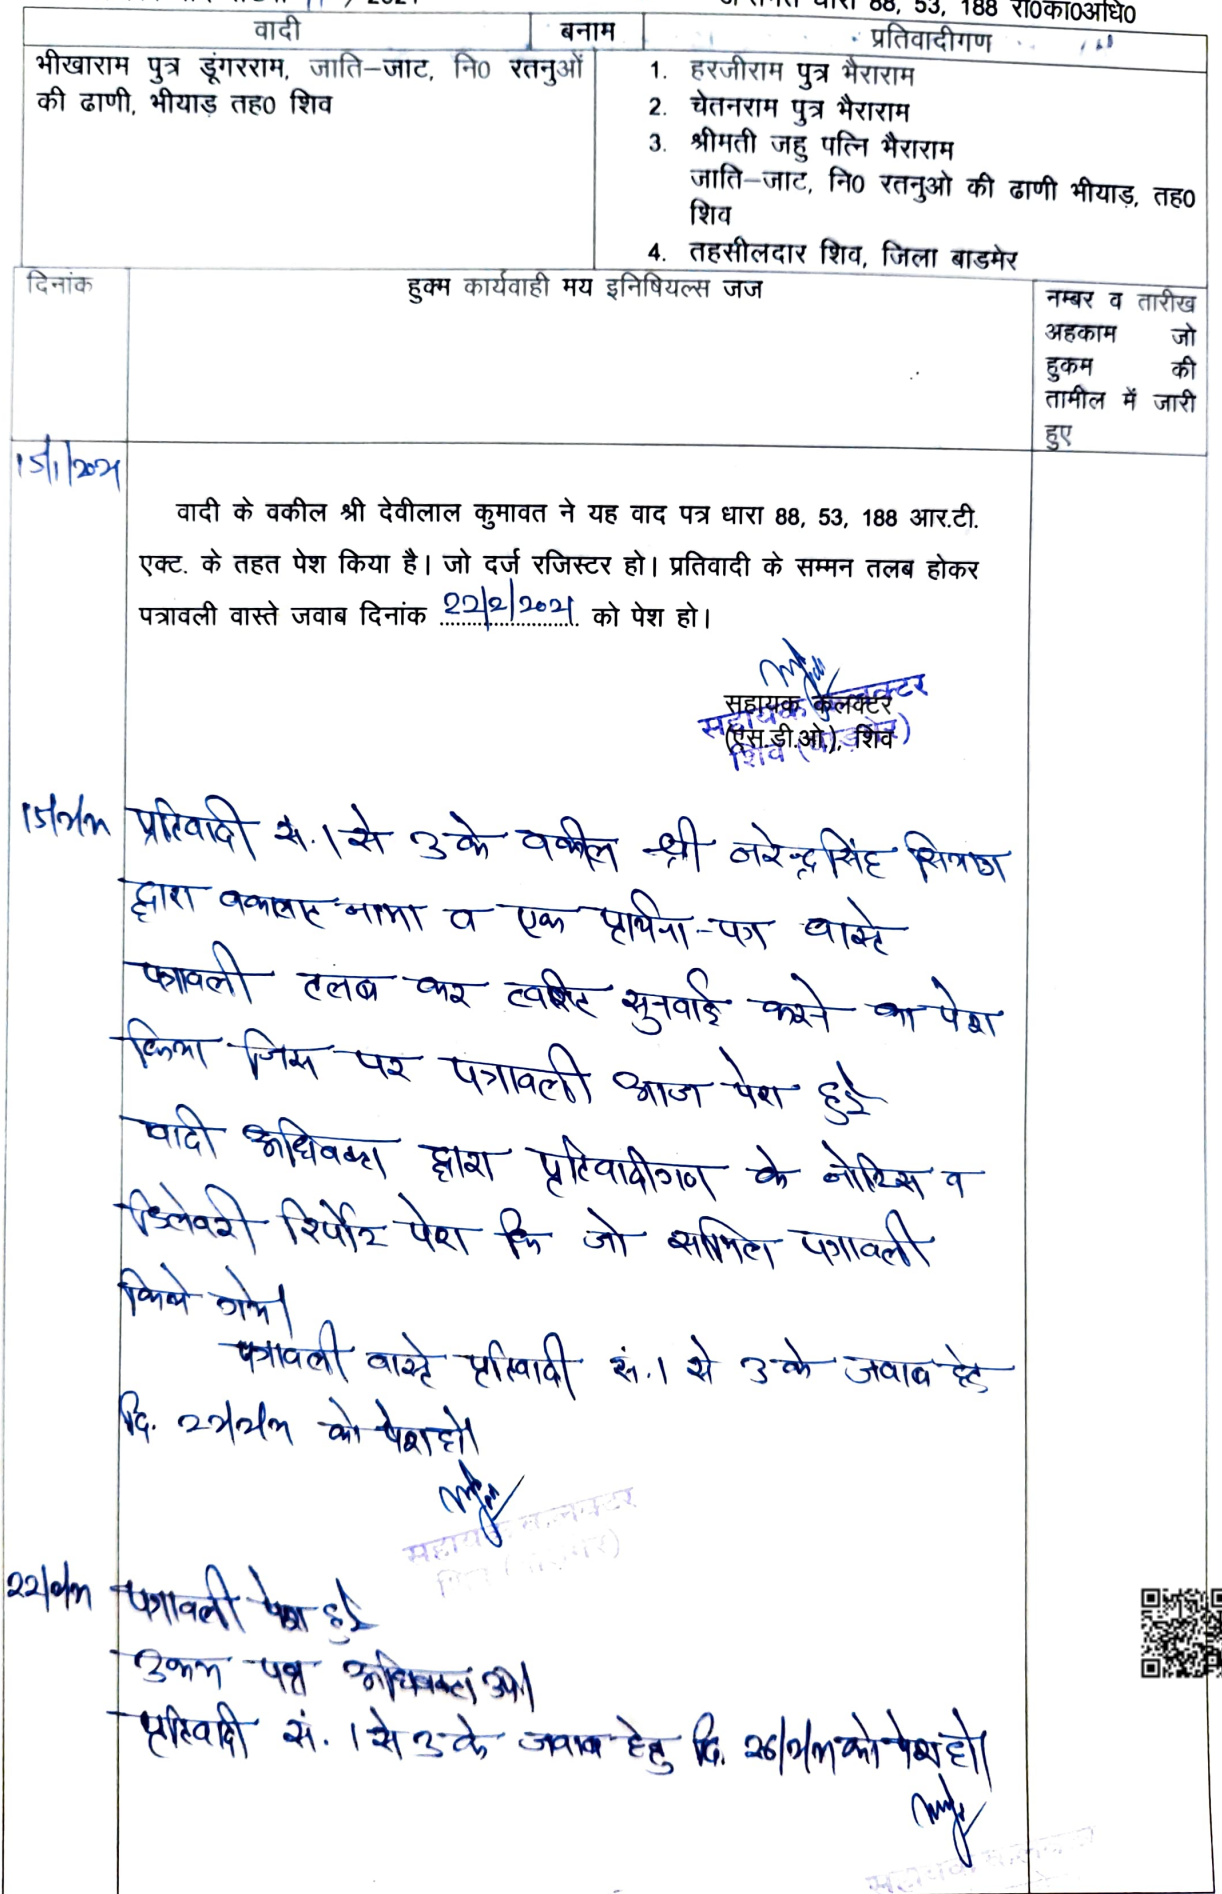 धारा 88, 53, 188 रा0का0अधि0
वादी बनाम प्रतिवादीगण
भीखाराम पुत्र डूंगरराम, जाति–जाट, नि0 रतनुओं
की ढाणी, भीयाड़ तह0 शिव
1. हरजीराम पुत्र भैराराम
2. चेतनराम पुत्र भैराराम
3. श्रीमती जहु पत्नि भैराराम
जाति–जाट, नि0 रतनुओ की ढाणी भीयाड़, तह0
शिव
4. तहसीलदार शिव, जिला बाडमेर
दिनांक हुक्म कार्यवाही मय इनिषियल्स जज
नम्बर व तारीख
अहकाम जो
हुकम की
तामील में जारी
हुए
15/1/2021
वादी के वकील श्री देवीलाल कुमावत ने यह वाद पत्र धारा 88, 53, 188 आर.टी.
एक्ट. के तहत पेश किया है। जो दर्ज रजिस्टर हो। प्रतिवादी के सम्मन तलब होकर
पत्रावली वास्ते जवाब दिनांक 22/2/2021 को पेश हो।
सहायक कलक्टर
(एस.डी.ओ), शिव
सहायक कलक्टर
शिव (बाड़मेर)
15/2/21 प्रतिवादी सं. 1 से 3 के वकील श्री नरेन्द्रसिंह
द्वारा वकालत नामा व एक प्रार्थना-पत्र वास्ते
पत्रावली तलब कर त्वरित सुनवाई करने का पेश
किया जिस पर पत्रावली आज पेश हुई
वादी अधिवक्ता द्वारा प्रतिवादीगण के नोटिस व
डिलेवरी रिर्पोट पेश कि जो सामिल पत्रावली
किये गये।
पत्रावली वास्ते प्रतिवादी सं. 1 से 3 के जवाब हेतु
दि. 22/2/21 को पेश हो।
सहायक कलक्टर
22/2/21 पत्रावली पेश हुई
उभय पक्ष अधिवक्ता उप।
प्रतिवादी सं. 1 से 3 के जवाब हेतु दि. 26/2/21 को पेश हो।
सहायक कलक्टर